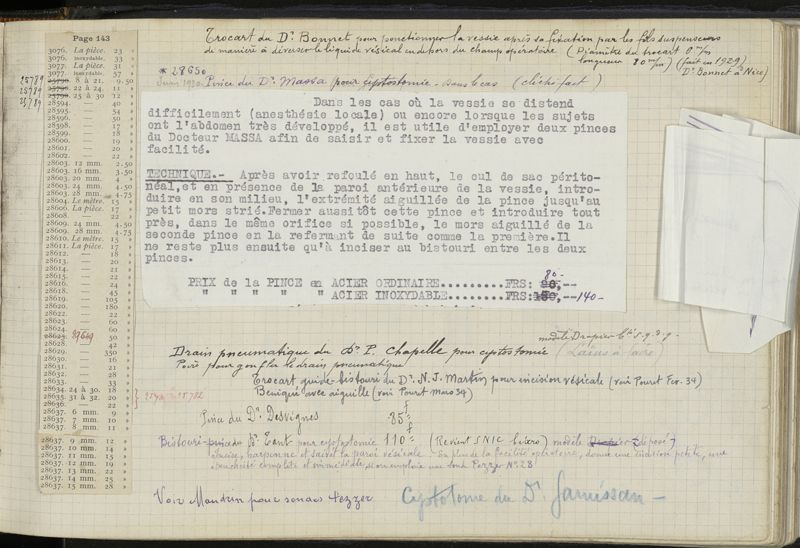 Page 143
3076. La pièce. 23 »
3076. inoxydable. 33 »
3077. La pièce. 31 »
3077. inoxydable. 57 »
25789 25790. 8 à 21. 9.50
25789 22 à 24. 11 »
25789 25 à 30. 12 »
28594. — 40 »
28595. — 54 »
28596. — 50 »
28598. — 17 »
28599. — 18 »
— 19 »
— 20 »
28602. — 22 »
28603. 12 mm. 2.50
28603. 16 mm. 3.50
28603. 20 mm. 4 »
28603. 24 mm. 4.50
28603. 28 mm. 4.75
28604. Le mètre. 15 »
28606. La pièce. 17 »
28608. — 22 »
28609. 24 mm. 4.50
28609. 28 mm. 4.75
28610. Le mètre. 15 »
28611. La pièce. 17 »
28612. — 18 »
— 19 »
28614. — 20 »
28615. — 22 »
28616. — 24 »
28618. — 45 »
28619. — 105 »
— 180 »
28622. — 22 »
28623. — 50 »
28624. — 60 »
89669 — 50 »
28628. — 42 »
28629. — 350 »
28630. — 16 »
28631. — 21 »
28632. — 28 »
28633. — 33 »
28634. 24 à 30. 18 »
28635. 31 à 32. 20 »
28636. — 22 »
28637. 6 mm. 9 »
28637. 7 mm. 10 »
28637. 8 mm. 11 »
28637. 9 mm. 12 »
28637. 10 mm. 14 »
28637. 11 mm. 16 »
28637. 12 mm. 19 »
28637. 13 mm. 22 »
28637. 14 mm. 25 »
28637. 15 mm. 28 »
Trocart du Dr Bonnet pour ponctionner la vessie après sa fixation par les fils suspenseurs
de manière à déverser le liquide vésical en dehors du champ opératoire (Diamètre du trocart 0 m/m
longueur 80 m/m) (fait en 1929)
Dr Bonnet à Nice)
* 28650
Juin 1930 Pince du Dr Massa pour cystostomie - sans le cas (cliché fait)
Dans les cas où la vessie se distend
difficilement (anesthésie locale) ou encore lorsque les sujets
ont l'abdomen très développé, il est utile d'employer deux pinces
du Docteur MASSA afin de saisir et fixer la vessie avec
facilité.
TECHNIQUE.- Après avoir refoulé en haut, le cul de sac périto-
néal,et en présence de la paroi antérieure de la vessie, intro-
duire en son milieu, l'extrémité aiguillée de la pince jusqu'au
petit mors strié.Fermer aussitôt cette pince et introduire tout
près, dans le même orifice si possible, le mors aiguillé de la
seconde pince en la refermant de suite comme la première.Il
ne reste plus ensuite qu'à inciser au bistouri entre les deux
pinces.
80-
PRIX de la PINCE en ACIER ORDINAIRE.........FRS: 90,--
" " " " " ACIER INOXYDABLE.........FRS:150,--140-
modèle Drapier
Drain pneumatique du Dr P. Chapelle pour cystostomie
Poire pour gonfler le drain pneumatique
Trocart guide-bistouri du Dr N. J. Martin pour incision vésicale (voir Pouret Fev. 34)
Béniqué avec aiguille (voir Pourit mars 34)
Pince du Dr Desvignes 85 f
Bistouri-pince du Dr pour cystostomie 110 f (Revient SNIC Lisero) modèle Drapier déposé
Incise, harponne et saisit la paroi vésicale. En plus de la facilité opératoire, donne une incision petite, une
étanchéité complète et immédiate, si on emploie une sonde Pezzer No 28
Voir Mandrin pour sondes Pezzer
Cystotome du Dr Jamissan -